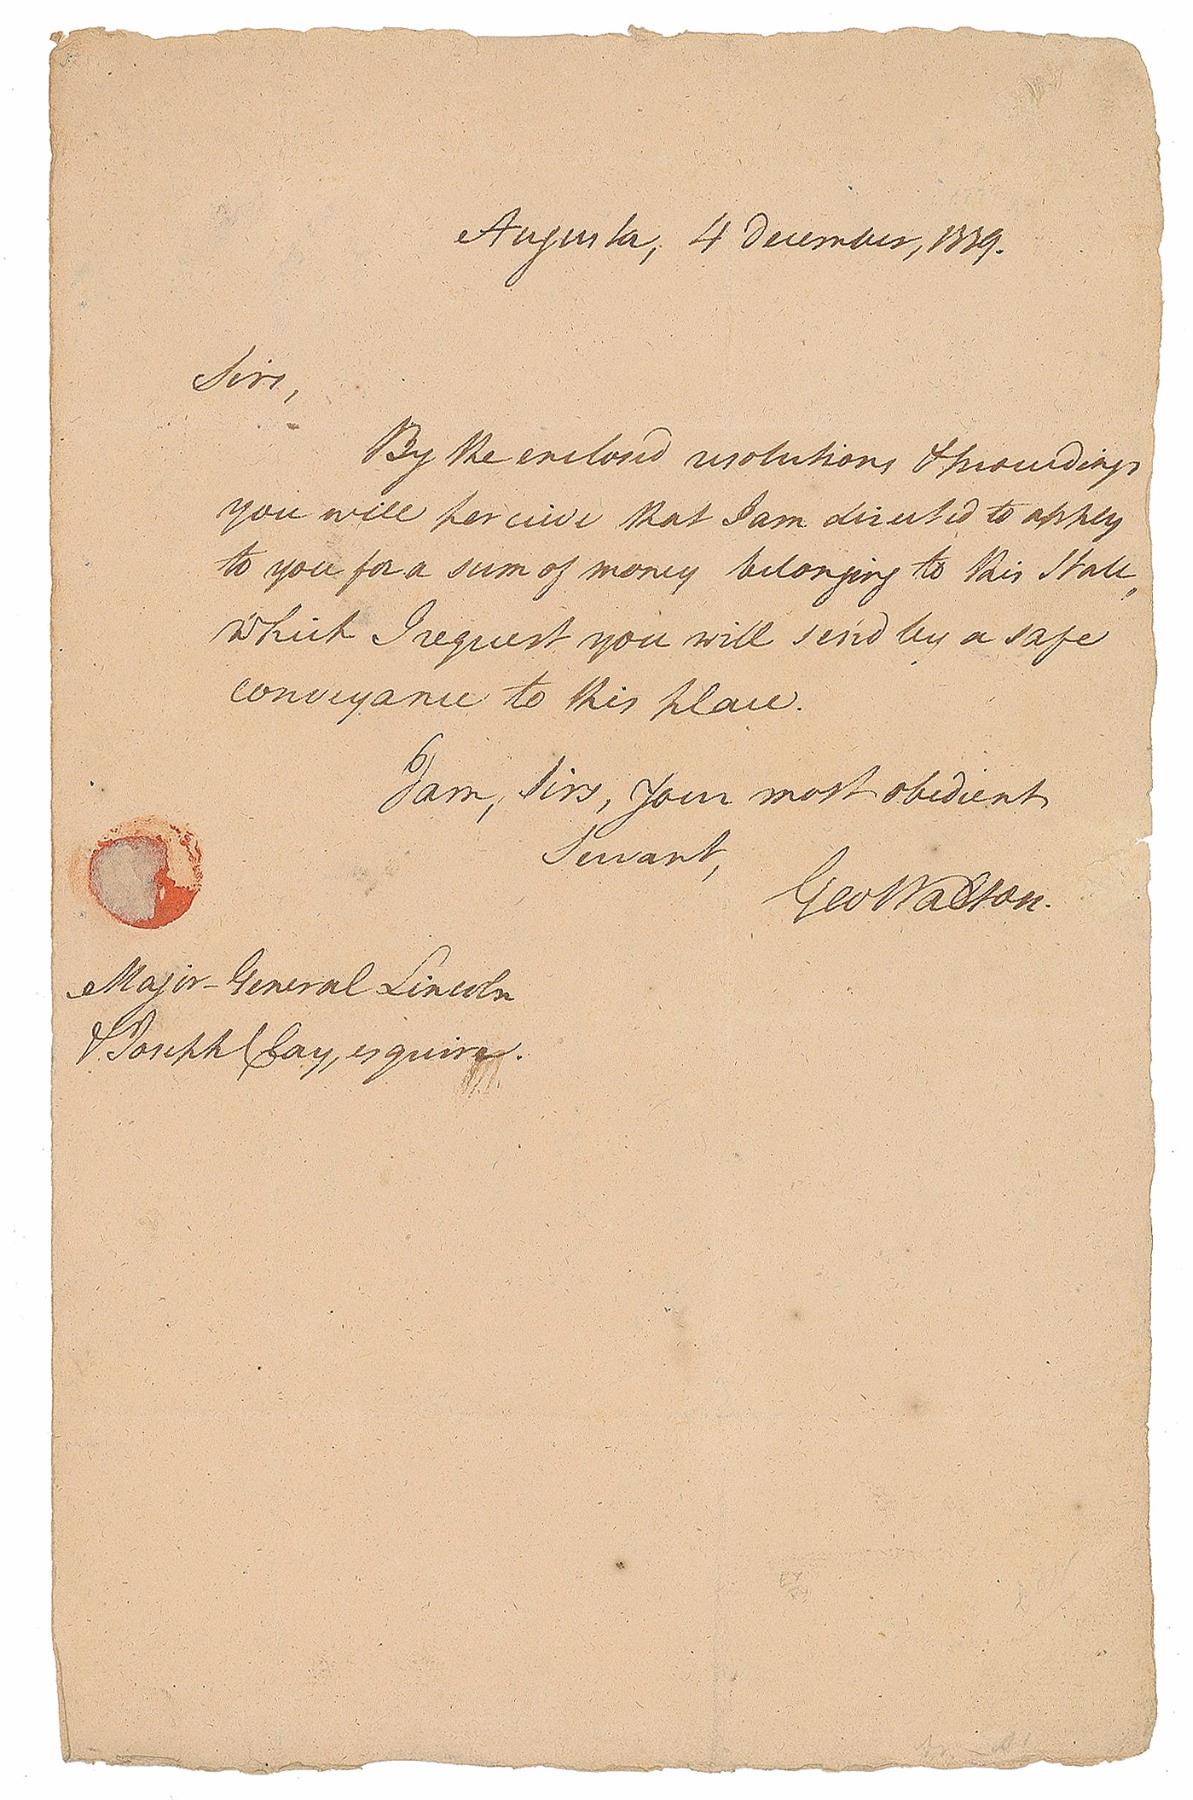 Augusta, 4 December, 1779.
Sirs,
By the enclosed resolutions & proceedings
you will perceive that I am directed to apply
to you for a sum of money belonging to this State,
which I request you will send by a safe
conveyance to this place.
I am, Sirs, Your most obedient
Servant,
Geo Walton.
Major-General Lincoln
& Joseph Clay, esquire.